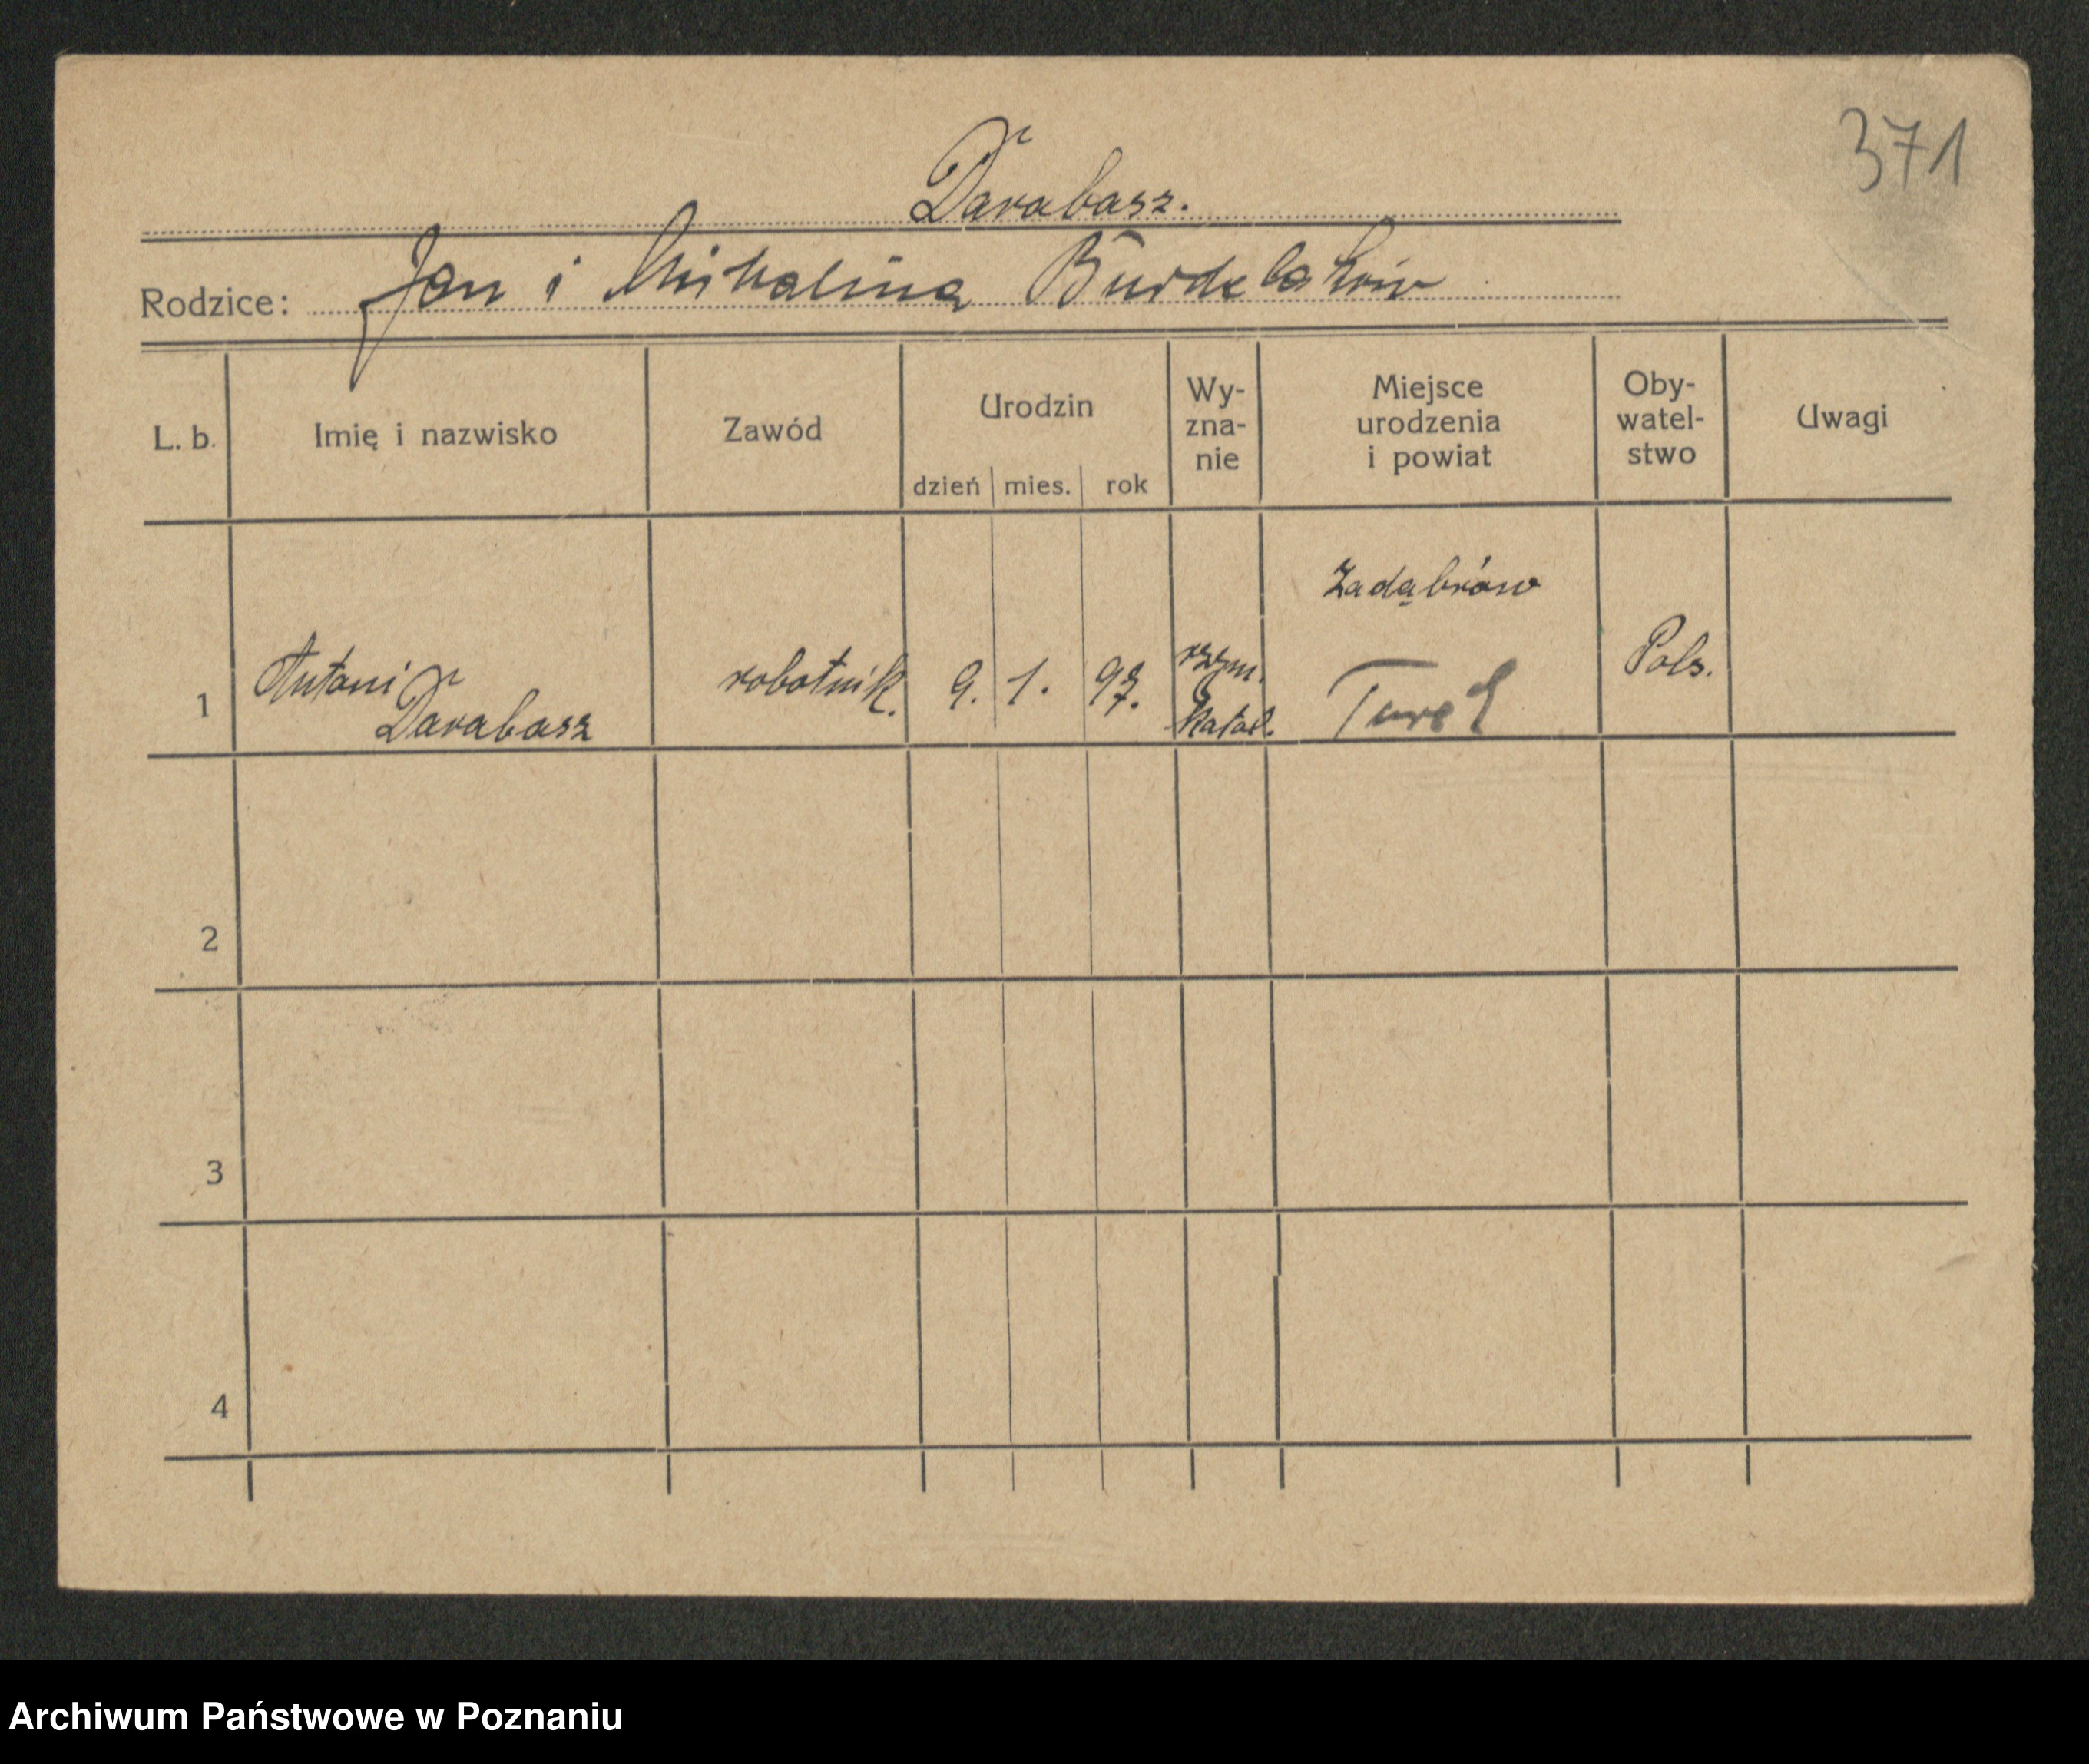 371
Darabasz.
Rodzice: Jan i Mihalina
L. b.
Imię i nazwisko
Zawód
Urodzin
dzień
mies.
rok
Wy-
zna-
nie
Miejsce
urodzenia
i powiat
Oby-
watel-
stwo
Uwagi
1
Antoni
Darabasz
robotnik.
9.
1.
97.
rzym.
katol.
Zadąbrów
Turek
Pols.
2
3
4
Archiwum Państwowe w Poznaniu